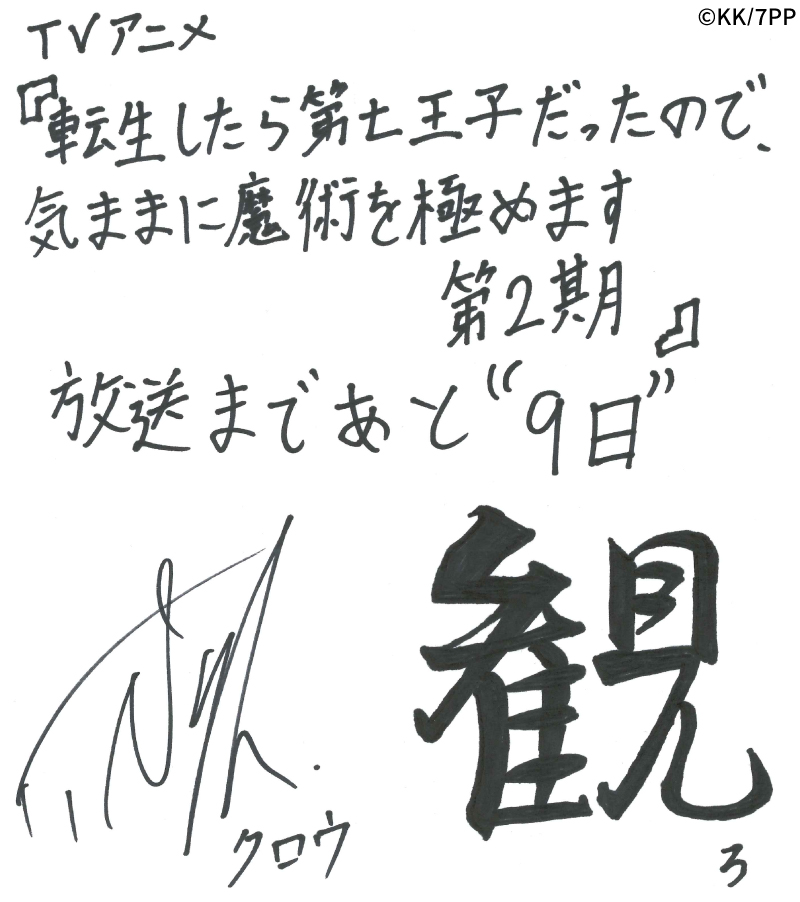 ©KK/7PP
TVアニメ
『転生したら第七王子だったので、
気ままに魔術を極めます
第2期』
放送まであと“9日”
観ろ
クロウ